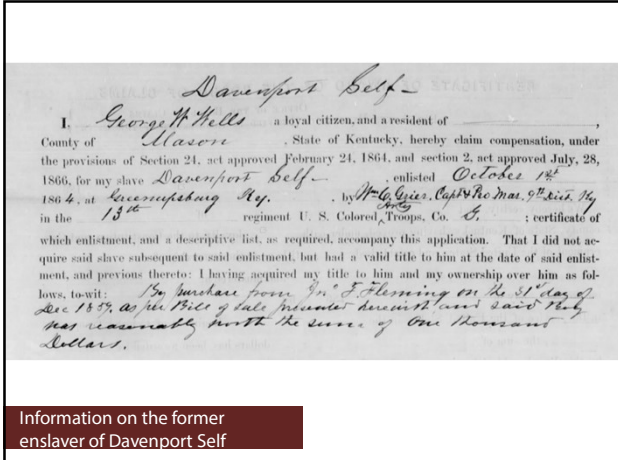 Davenport Self –
I, George W Wells a loyal citizen, and a resident of ,
County of Mason , State of Kentucky, hereby claim compensation, under
the provisions of Section 24, act approved February 24, 1864, and section 2, act approved July, 28,
1866, for my slave Davenport Self – , enlisted October 1st
1864, at Greenupsburg Ky. , by Wm C. Grier, Capt & Pro Mar. 9th Dist. Ky
in the 13th regiment U. S. Colored Arty Troops, Co. G. ; certificate of
which enlistment, and a descriptive list, as required, accompany this application. That I did not ac-
quire said slave subsequent to said enlistment, but had a valid title to him at the date of said enlist-
ment, and previous thereto: I having acquired my title to him and my ownership over him as fol-
lows, to-wit: By purchase from Jno F. Fleming on the 31st day of
Dec 1859, as per Bill of sale presented herewith, and said Boy
was reasonably worth the sum of One thousand
Dollars.
Information on the former
enslaver of Davenport Self